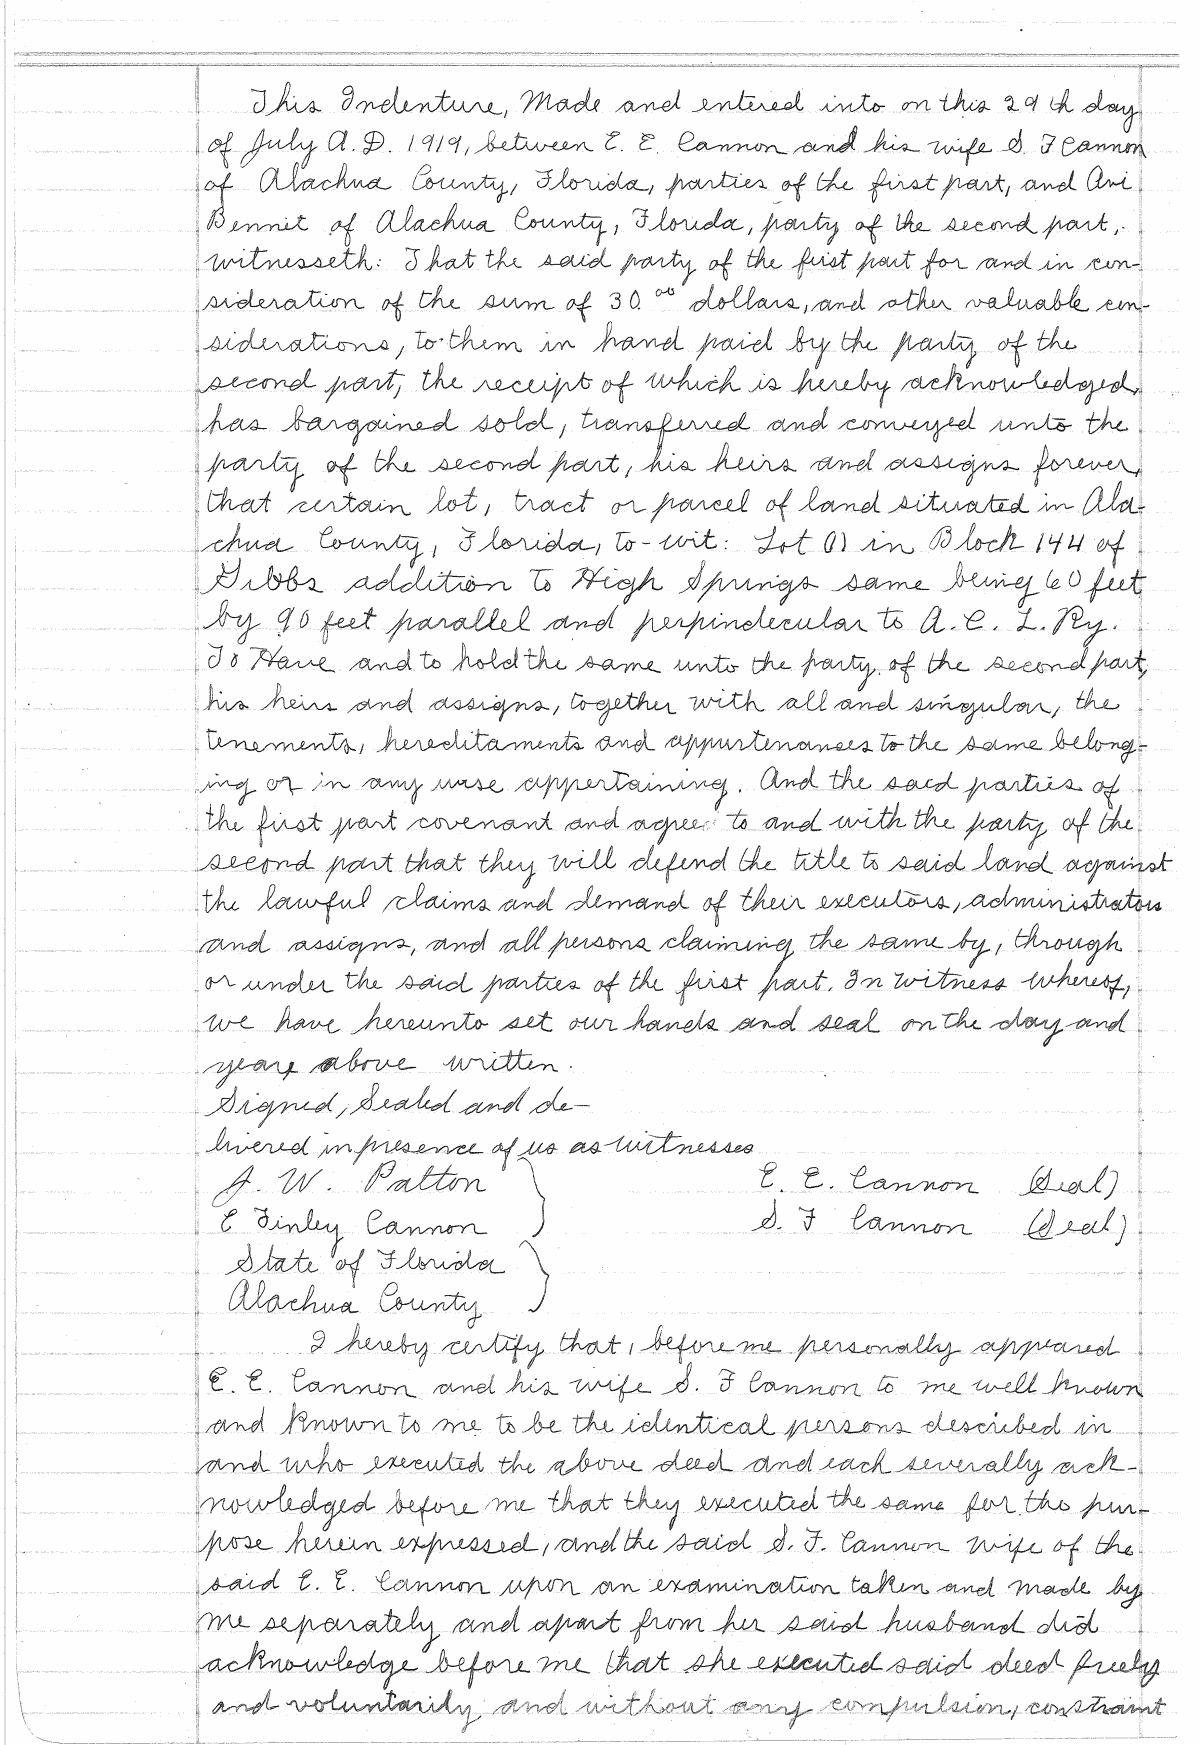 This Indenture, Made and entered into on this 29th day
of July A.D. 1919, between E. E. Cannon and his wife S. F Cannon
of Alachua County, Florida, parties of the first part, and Avi
Bennit of Alachua County, Florida, party of the second part,
witnesseth: That the said party of the first part for and in con-
sideration of the sum of 30.00 dollars, and other valuable con-
siderations, to them in hand paid by the party of the
second part, the receipt of which is hereby acknowledged,
has bargained sold, transferred and conveyed unto the
party of the second part, his heirs and assigns forever,
that certain lot, tract or parcel of land situated in Ala-
chua County, Florida, to-wit: Lot in Block 144 of
Gibbs addition to High Springs same being 60 feet
by 90 feet parallel and perpindecular to A. C. L. Ry.
To Have and to hold the same unto the party of the second part,
his heirs and assigns, together with all and singular, the
tenements, hereditaments and appurtenanses to the same belong-
ing or in any wise appertaining. And the said parties of
the first part covenant and agree to and with the party of the
second part that they will defend the title to said land against
the lawful claims and demand of their executors, administrators
and assigns, and all persons claiming the same by, through
or under the said parties of the first part. In Witness Whereof,
we have hereunto set our hands and seal on the day and
year above written.
Signed, Sealed and de-
livered in presence of us as witnesses
J. W. Patton E. E. Cannon (Seal)
E Finley Cannon S. F Cannon (Seal)
State of Florida
Alachua County
I hereby certify that, before me personally appeared
E. E. Cannon and his wife S. F Cannon to me well known
and known to me to be the identical persons described in
and who executed the above deed and each severally ack-
nowledged before me that they executed the same for the pur-
pose herein expressed, and the said S. F. Cannon wife of the
said E. E. Cannon upon an examination taken and made by
me separately and apart from her said husband did
acknowledge before me that she executed said deed freely
and voluntarily and without any compulsion, constraint